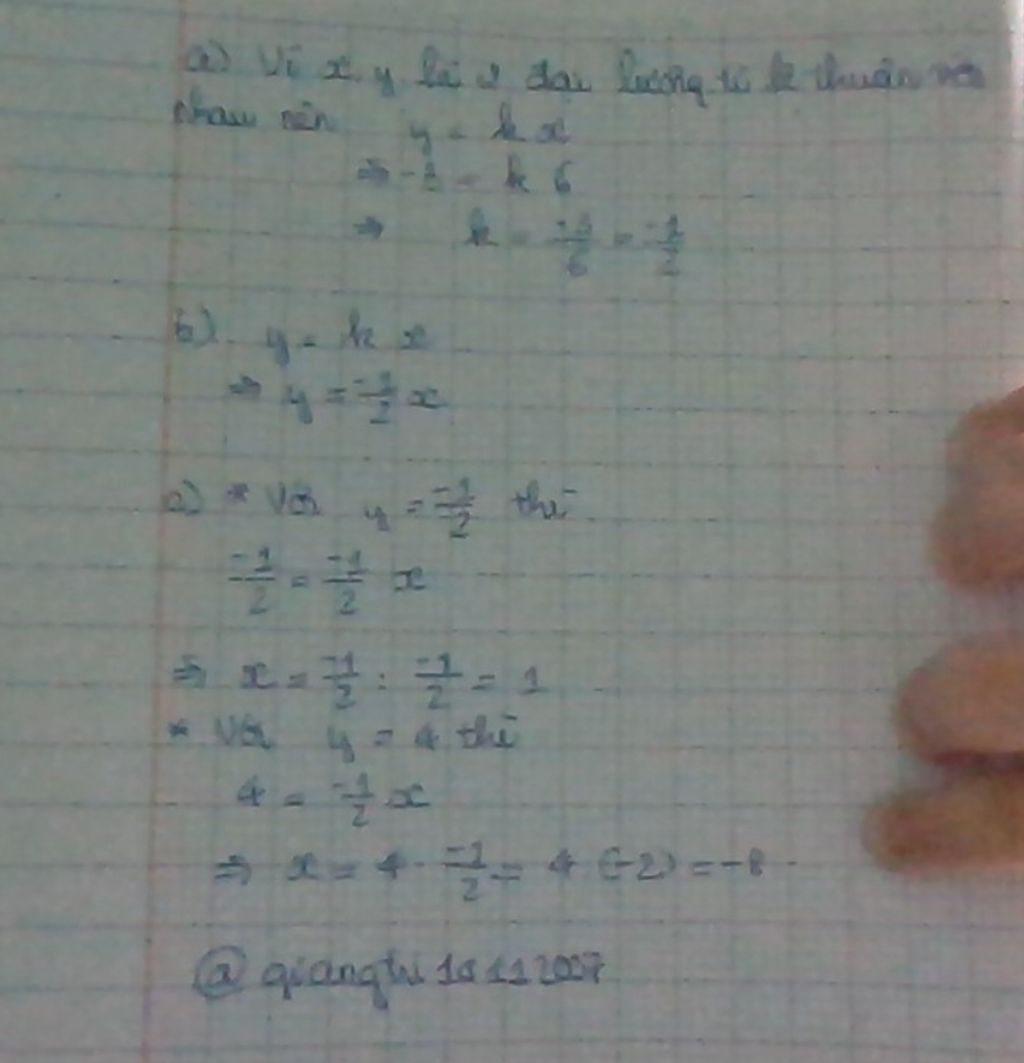 a) Vì x, y là 2 đại lượng tỉ lệ thuận với
nhau nên y = k x
⇒ -3 = k 6
⇒ k = -3/6 = -1/2
b) y = k x
⇒ y = -1/2 x
c) * Với y = -1/2 thì
-1/2 = -1/2 x
⇒ x = -1/2 : -1/2 = 1
* Với y = 4 thì
4 = -1/2 x
⇒ x = 4 : -1/2 = 4 (-2) = -8